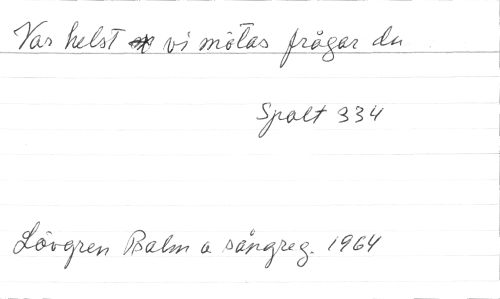 Var helst vi mötas frågar du
Spalt 334
Lövgren Psalm o sångreg. 1964